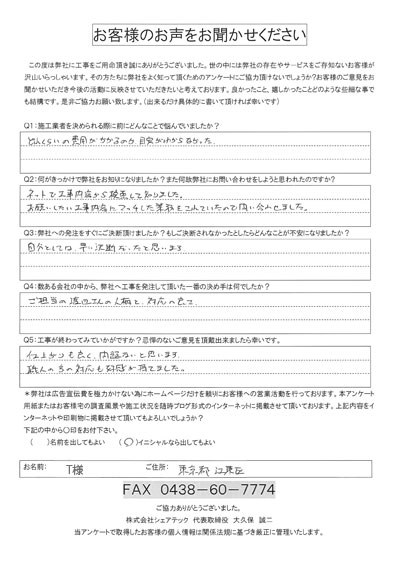 お客様のお声をお聞かせください
この度は弊社に工事をご用命頂き誠にありがとうございました。世の中には弊社の存在やサービスをご存知ないお客様が
沢山いらっしゃいます。その方たちに弊社をよく知って頂くためのアンケートにご協力頂けないでしょうか?お客様のご意見をお
聞かせいただき今後の活動に反映させていただきたいと考えております。良かったこと、嬉しかったことどのような些細な事で
も結構です。是非ご協力お願い致します。(出来るだけ具体的に書いて頂ければ幸いです)
Q1:施工業者を決められる際に前にどんなことで悩んでいましたか?
どれくらいの費用がかかるのか、目安がわからなかった。
Q2:何がきっかけで弊社をお知りになりましたか?また何故弊社にお問い合わせをしようと思われたのですか?
ネットで工事内容から検索して知りました。
お願いしたい工事内容にマッチした業務をされていたので問い合わせました。
Q3:弊社への発注をすぐにご決断頂けましたか?もしご決断されなかったとしたらどんなことが不安になりましたか?
自分としては、早い決断だったと思います。
Q4:数ある会社の中から、弊社へ工事を発注して頂いた一番の決め手は何でしたか?
ご担当の渡辺さんの人柄と、対応の良さ。
Q5:工事が終わってみていかがですか?忌憚のないご意見を頂戴出来ましたら幸いです。
仕上がりも良く、問題ないと思います。
職人の方の対応も好感が持てました。
*弊社は広告宣伝費を極力かけない為にホームページだけを頼りにお客様への営業活動を行っております。本アンケート
用紙またはお客様宅の調査風景や施工状況を随時ブログ形式のインターネットに掲載させて頂いております。上記内容をイ
ンターネットや印刷物に掲載させて頂いてもよろしいでしょうか?
下記の中から〇印をお付下さい。
( )名前を出してもよい (〇)イニシャルなら出してもよい
お名前: T様 ご住所: 東京都 江東区
FAX 0438-60-7774
ご協力ありがとうございました。
株式会社シェアテック 代表取締役 大久保 誠二
当アンケートで取得したお客様の個人情報は関係法規に基づき厳正に管理いたします。